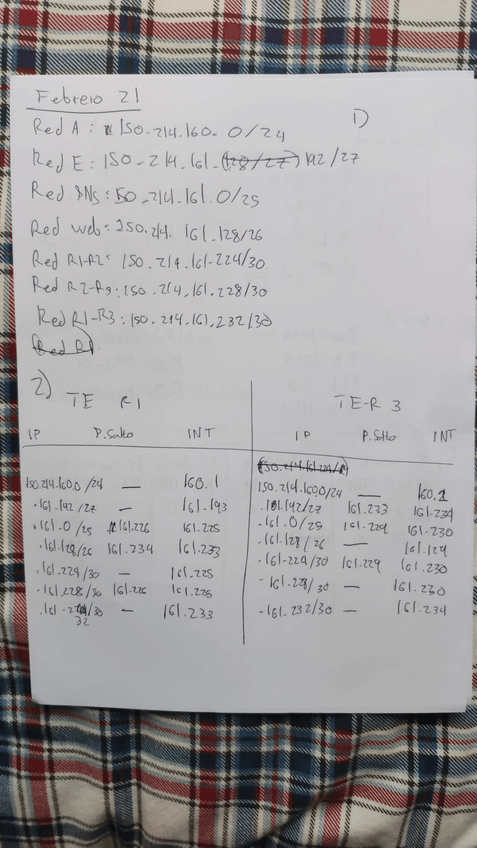 Febrero 21
1)
Red A: 150.214.160.0/24
Red E: 150.214.161.192/27
Red DNS: 150.214.161.0/25
Red web: 150.214.161.128/26
Red R1-R2: 150.214.161.224/30
Red R2-R3: 150.214.161.228/30
Red R1-R3: 150.214.161.232/30
2)
TE R1
IP P.Salto INT
150.214.160.0/24 — 160.1
.161.192/27 — 161.193
.161.0/25 161.226 161.225
.161.128/26 161.234 161.233
.161.224/30 — 161.225
.161.228/30 161.226 161.225
.161.232/30 — 161.233
TE-R3
IP P.Salto INT
150.214.160.0/24 — 160.1
.161.192/27 161.233 161.234
.161.0/25 161.229 161.230
.161.128/26 — 161.129
.161.224/30 161.229 161.230
.161.228/30 — 161.230
.161.232/30 — 161.234